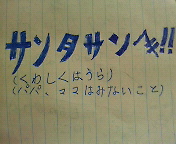 サンタサンへ!!
(くわしくはうら)
(パパ、ママはみないこと)